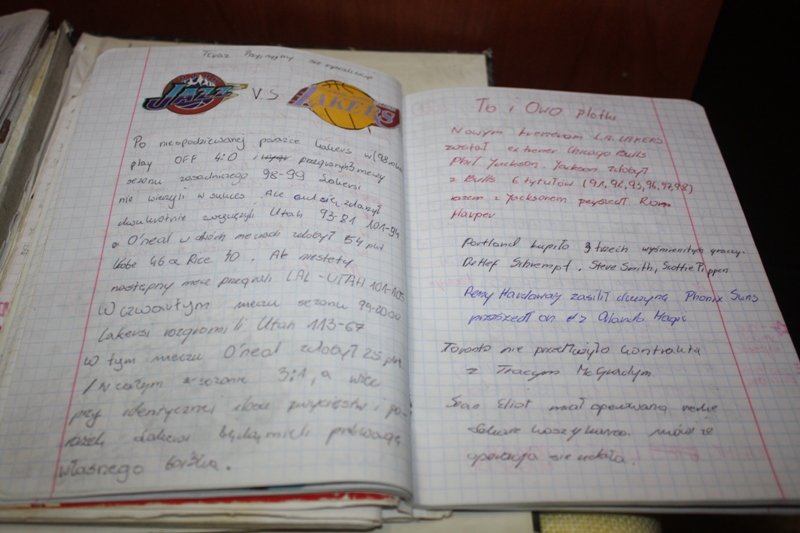 Teraz
JAZZ V.S LAKERS
Po niespodziewanej porażce Lakers w(98
play OFF 4:0 i
sezonu zasadniczego 98-99 Lakersi
nie wierzyli w sukces. Ale
dwukrotnie zwyciężyli Utah 93-81 101-94
a O'neal w dwóch meczach zdobył 54 pkt
Kobe 46 a Rice 40. Ale niestety
następny mecz przegrali LAL-UTAH 101-105
W czwartym meczu sezonu 99-2000
Lakersi rozgromili Utah 113-67
w tym meczu O'neal zdobył 25 pkt
w sezonie 3:1, a więc
przy identycznej ilości zwycięstw i po-
rażek Lakersi będą mieli przewagę
własnego boiska.
To i Owo plotki
Nowym trenerem L.A. LAKERS
został extrener Chicago Bulls
Phil Jackson. Jackson zdobył
z Bulls 6 tytułów (91,92,93,96,97,98)
razem z Jacksonem przyszedł Ron
Harper
Portland kupiło 3 trzech wyśmienitych graczy.
Detlef Schrempf, Steve Smith, Scottie Pippen
Peny Hardaway zasilił drużynę Phonix Suns
przeszedł on z Orlando Magic
Toronto nie przedłużyło kontraktu
z Tracym McGradym.
Sean Eliot miał operowaną nerkę
dalsze losy
operacja się udała.